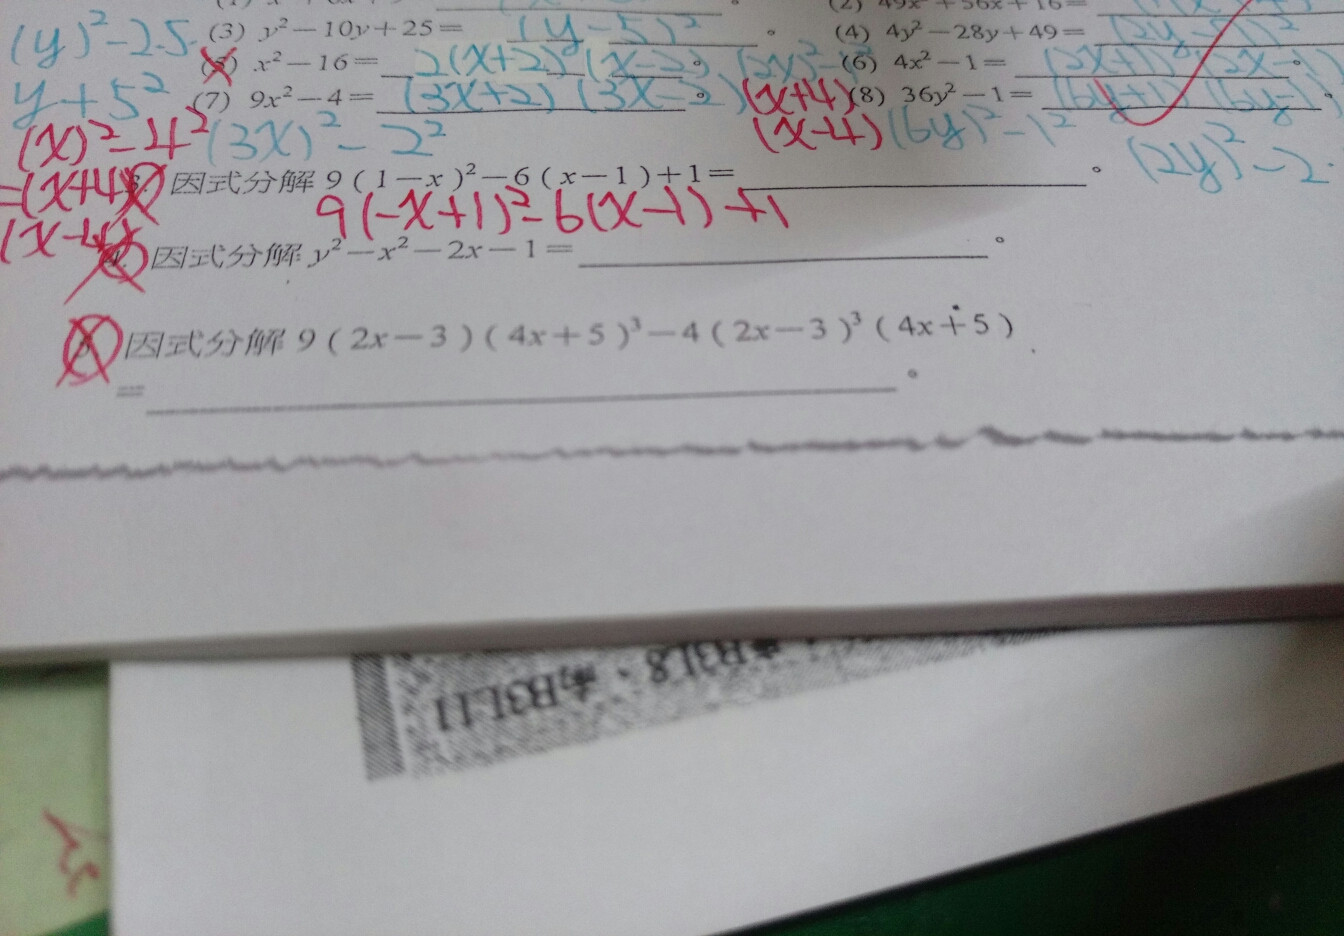 (3) y²－10y＋25＝ (y－5)² 。 (4) 4y²－28y＋49＝
(y)²－25
x²－16＝ 2(x+2)² (x－2) 。 (6) 4x²－1＝
y＋5²
(7) 9x²－4＝ (3x+2) (3x－2) 。 (x+4) (8) 36y²－1＝ (6y+1) (6y－1) 。
(x)²－4² (3x)²－2² (x－4) (6y)²－1² (2y)²－2
=(x+4)
因式分解 9(1－x)²－6(x－1)＋1＝ 。
(x－4) 9(－x+1)²－6(x－1)+1
因式分解 y²－x²－2x－1＝ 。
因式分解 9(2x－3)(4x＋5)³－4(2x－3)³(4x＋5)
＝ 。
南B3L11、康B3L8、